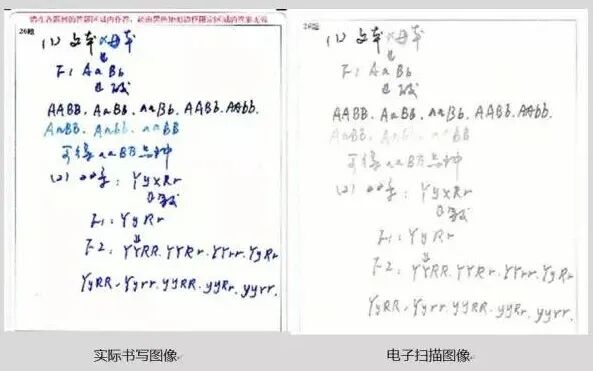 请在各题目的答题区域内作答，超出黑色矩形边框限定区域的答案无效
26题
(1) 父本×母本
F1: AaBb
AABB. AaBb. aaBb. AABb. AAbb.
AaBB. Aabb. aaBB
可得aaBB品种
(2) : YyxRr
F1: YyRr
F2: YYRR. YYRr. YYrr. YyRr
YyRR. Yyrr. yyRR. yyRr. yyrr.
实际书写图像
26题
(1) 父本×母本
F1: AaBb
AABB. AaBb. aaBb. AABb. AAbb.
AaBB. Aabb. aaBB
可得aaBB品种
(2) : YyxRr
F1: YyRr
F2: YYRR. YYRr. YYrr. YyRr
YyRR. Yyrr. yyRR. yyRr. yyrr.
电子扫描图像